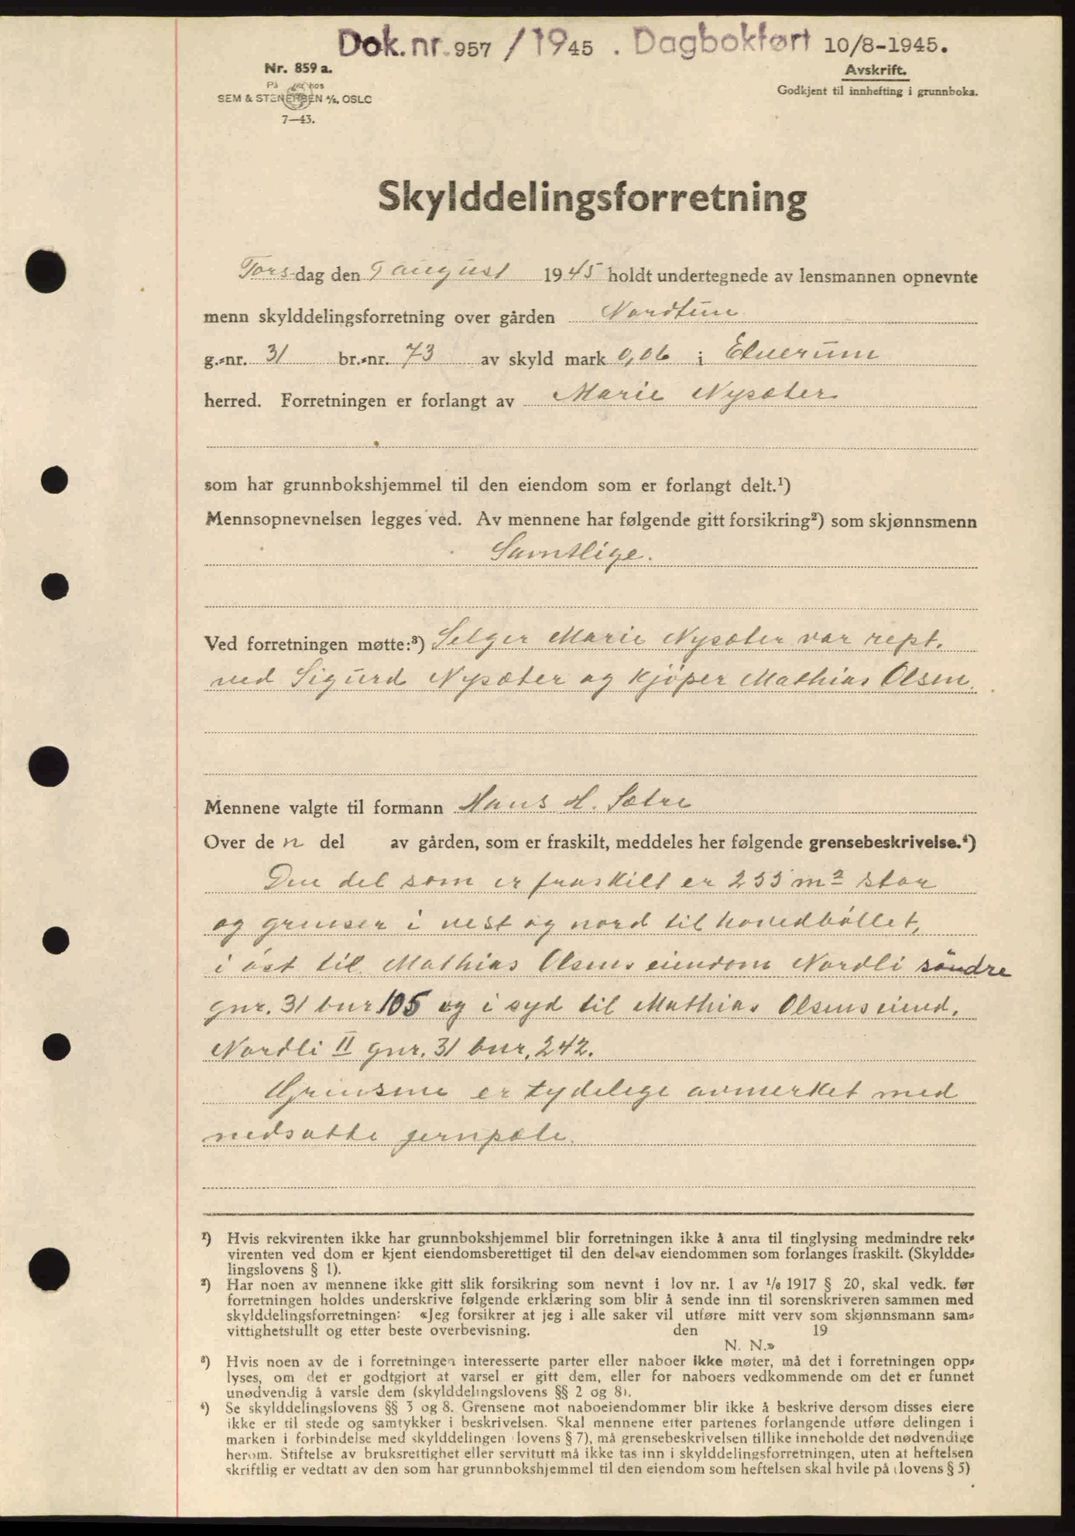 Dok. nr. 957 / 1945 . Dagbokført 10/8-1945.
Nr. 859 a.
Avskrift.
SEM & STENERSEN A/S, OSLO
Godkjent til innhefting i grunnboka.
7—43.
Skylddelingsforretning
Torsdag den 9 august 1945 holdt undertegnede av lensmannen opnevnte
menn skylddelingsforretning over gården Nordtun
g.-nr. 31 br.-nr. 73 av skyld mark 0,06 i Elverum
herred. Forretningen er forlangt av Marie Nysæter
som har grunnbokshjemmel til den eiendom som er forlangt delt.¹)
Mennsopnevnelsen legges ved. Av mennene har følgende gitt forsikring²) som skjønnsmenn
Samtlige.
Ved forretningen møtte:³) Selger Marie Nysæter var rept.
ved Sigurd Nysæter og kjöper Mathias Olsen.
Mennene valgte til formann Hans H. Sætre
Over de n del av gården, som er fraskilt, meddeles her følgende grensebeskrivelse.⁴)
Den del som er fraskilt er 255 m² stor
og grenser i vest og nord til hovedböllet,
i öst til Mathias Olsens eiendom Nordli söndre
gnr. 31 bnr 105 og i syd til Mathias Olsens eiend.
Nordli II gnr. 31 bnr. 242.
Grensene er tydelege avmerket med
nedsatte jernpæle.
¹) Hvis rekvirenten ikke har grunnbokshjemmel blir forretningen ikke å anta til tinglysing medmindre rek-
virenten ved dom er kjent eiendomsberettiget til den del av eiendommen som forlanges fraskilt. (Skyldde-
lingslovens § 1).
²) Har noen av mennene ikke gitt slik forsikring som nevnt i lov nr. 1 av 1/6 1917 § 20, skal vedk. før
forretningen holdes underskrive følgende erklæring som blir å sende inn til sorenskriveren sammen med
skylddelingsforretningen: «Jeg forsikrer at jeg i alle saker vil utføre mitt verv som skjønnsmann sam-
vittighetsfullt og etter beste overbevisning. den 19
N. N.»
³) Hvis noen av de i forretningen interesserte parter eller naboer ikke møter, må det i forretningen opp-
lyses, om det er godtgjort at varsel er gitt dem, eller for naboers vedkommende om det er funnet
unødvendig å varsle dem (skylddelingslovens §§ 2 og 8).
⁴) Se skylddelingslovens §§ 3 og 8. Grensene mot naboeiendommer blir ikke å beskrive dersom disses eiere
ikke er til stede og samtykker i beskrivelsen. Skal mennene etter partenes forlangende utføre delingen i
marken i forbindelse med skylddelingen (lovens § 7), må grensebeskrivelsen tillike inneholde det nødvendige
herom. Stiftelse av bruksrettighet eller servitutt må ikke tas inn i skylddelingsforretningen, uten at heftelsen
skriftlig er vedtatt av den som har grunnbokshjemmel til den eiendom som heftelsen skal hvile på (lovens § 5)